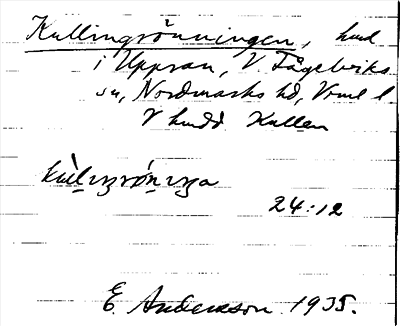 Kullingrönningen, hmd
i Uppsan, V Fågelviks
sn, Nordmarks hd, Vrml l
V hmdd Kullen
24:12
E. Andersson 1935.